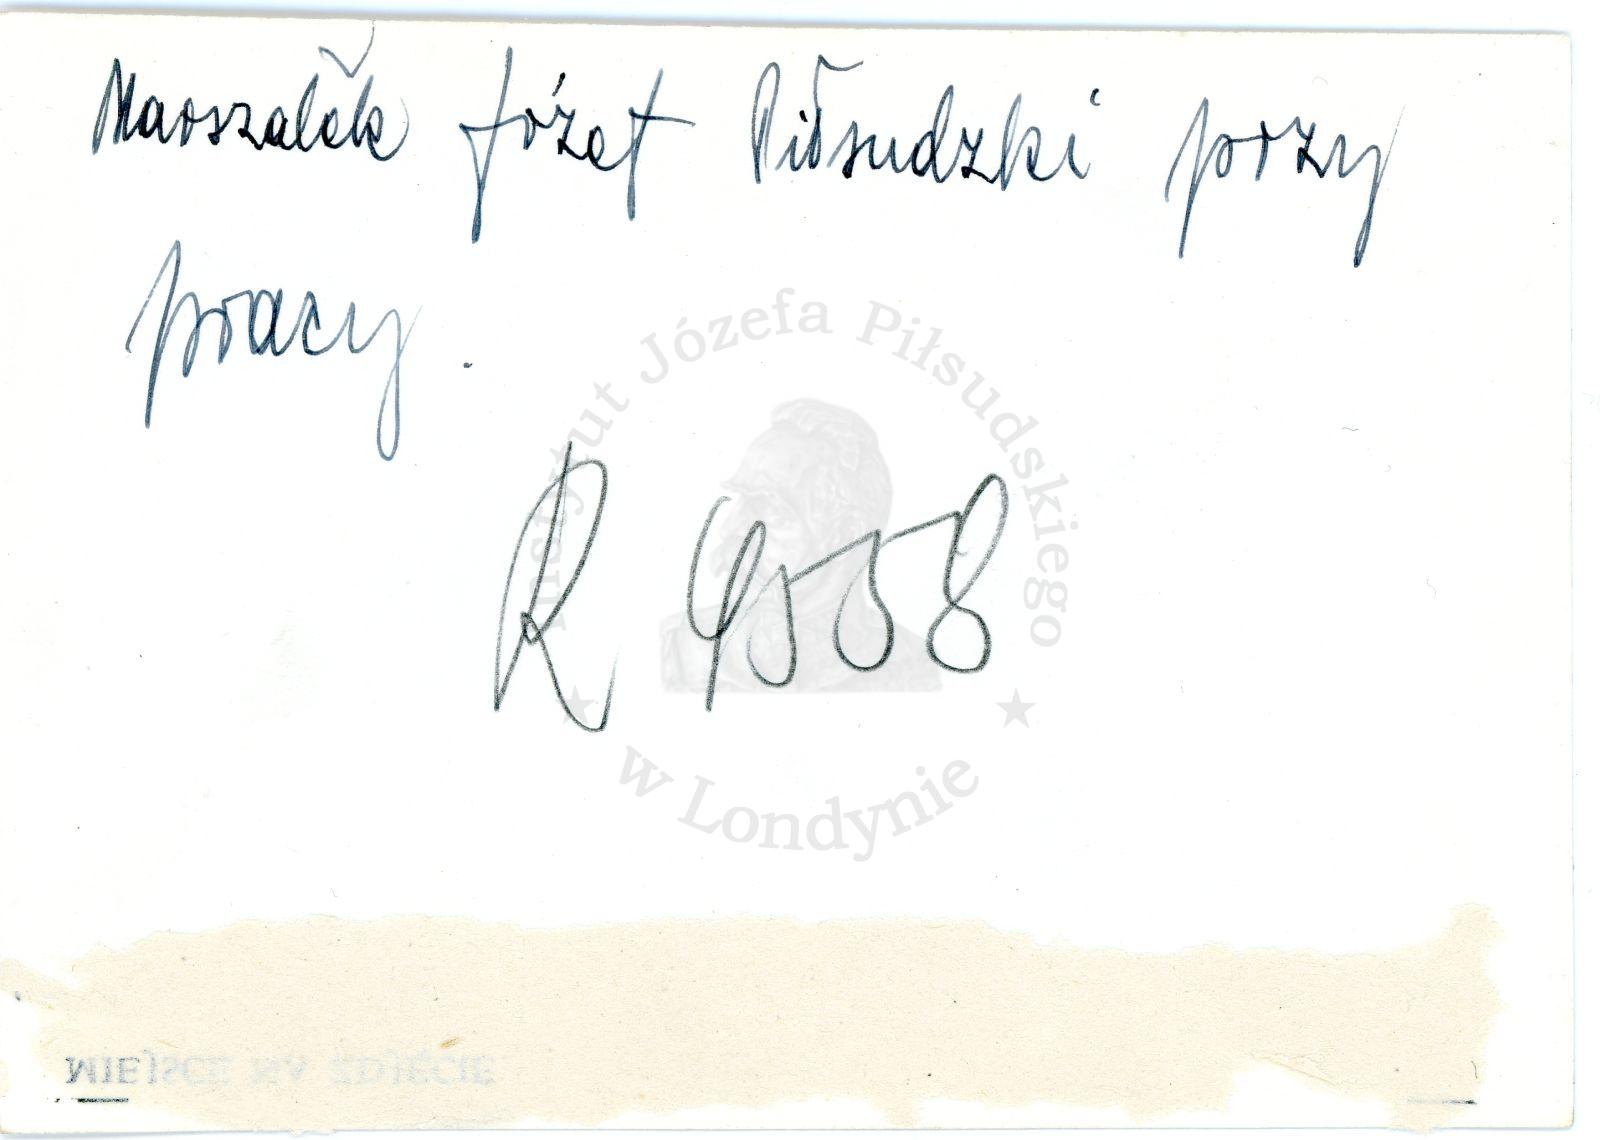 Marszałek Józef Piłsudzki przy
pracy.
Instytut Józefa Piłsudskiego
w Londynie
R 4558
MIEJSCE NA ZDJĘCIE